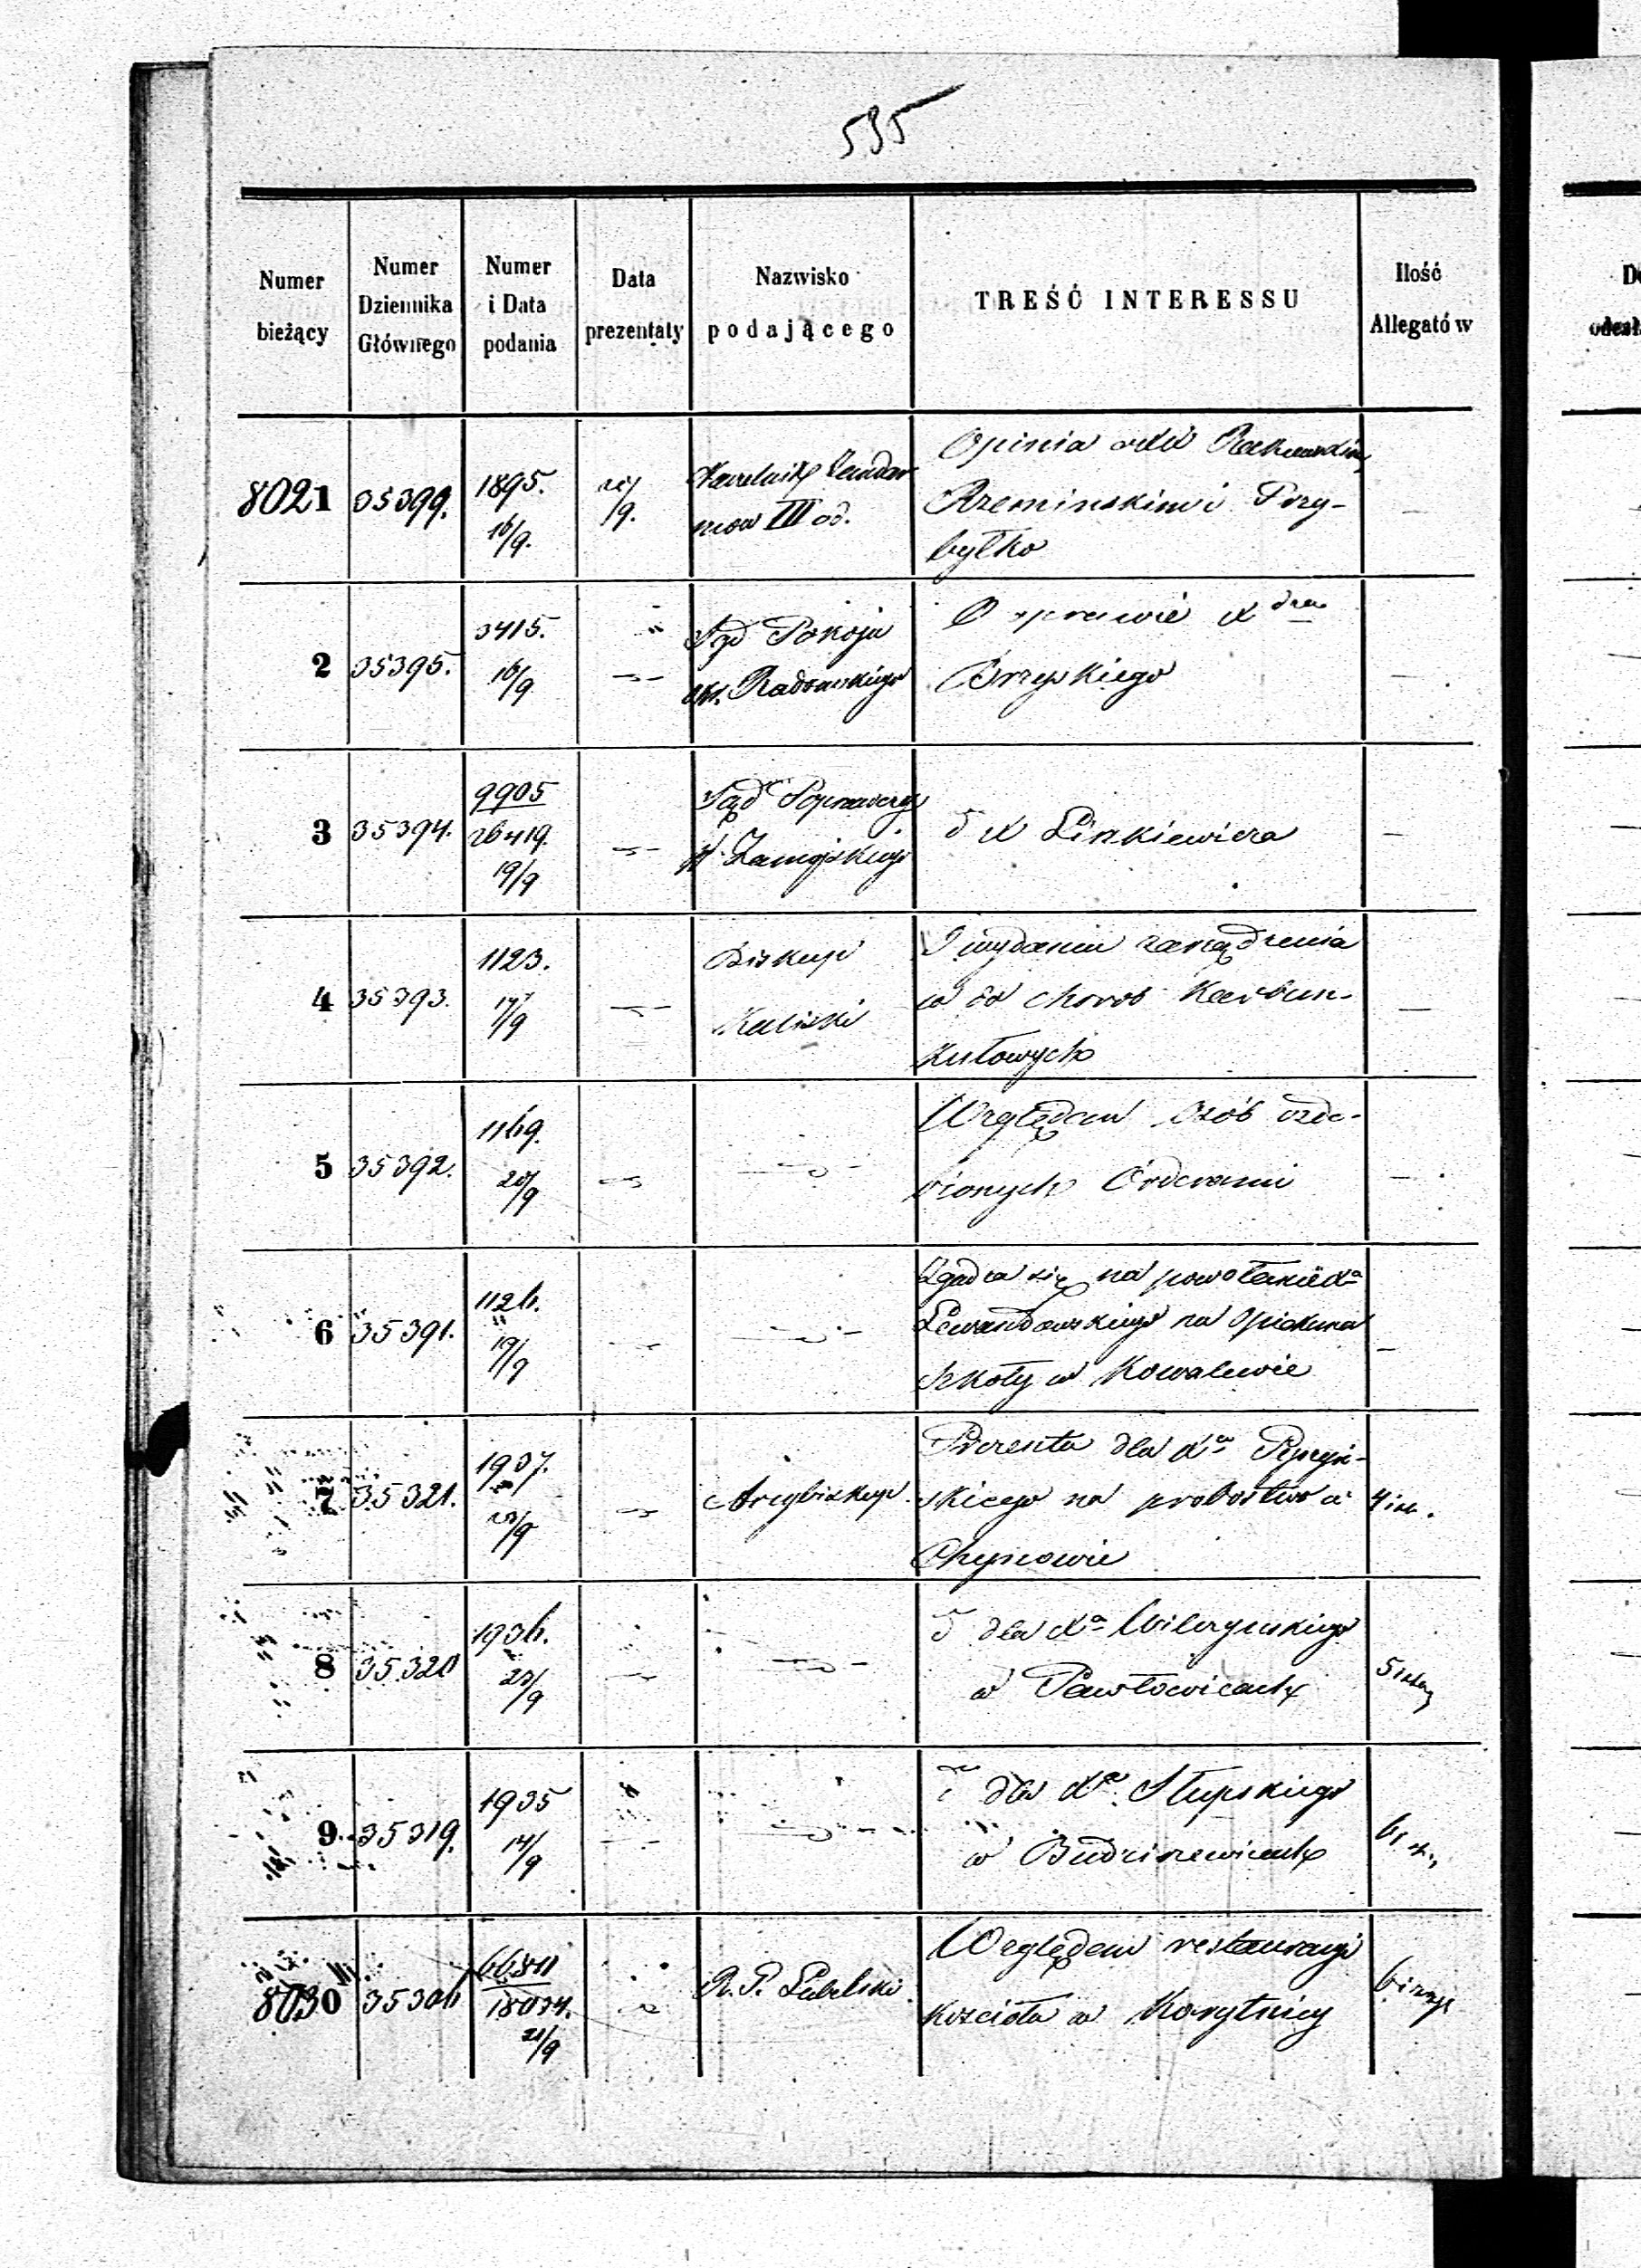 535
Numer bieżący
Numer Dziennika Głównego
Numer i Data podania
Data prezentaty
Nazwisko podającego
TREŚĆ INTERESSU
Ilość Allegatów
8021 35399. 1895. 16/9.
/9.
mow III od.
Opinia
Rzeminskim i Przy-
byłko
2 35395. 3415. 16/9
Sąd Pokoju
Radomskiego
O sprawie
Brzeskiego
3 35394. 9905
26419.
19/9
Sąd Poprawczy
Zamojskiego
Linkiewicza
4 35393. 1123. 17/9
Biskup
Kaliski
O wydaniu zarządzenia
w do chorob Karbun-
kułowych
5 35392. 1169. 20/9
Względem osób ozdo-
bionych Orderami
6 35391. 1126. 19/9
Zgadza się na powołanie Xa
Lewandowskiego na Opiekuna
szkoły w Kowalewie
7 35321. 1937. 23/9
Arcybiskup
Prezenta dla Xa
skiego na probostwo w
Chynowie
8 35320 1936. 23/9
dla Xa
w Pawłowicach
9 35319. 1935 14/9
dla Xa Słupskiego
w Budziszewicach
8030 35306 66811
18034.
21/9
R. G. Lubelski
Względem restauracyi
Kościoła w Korytnicy
De
odesł